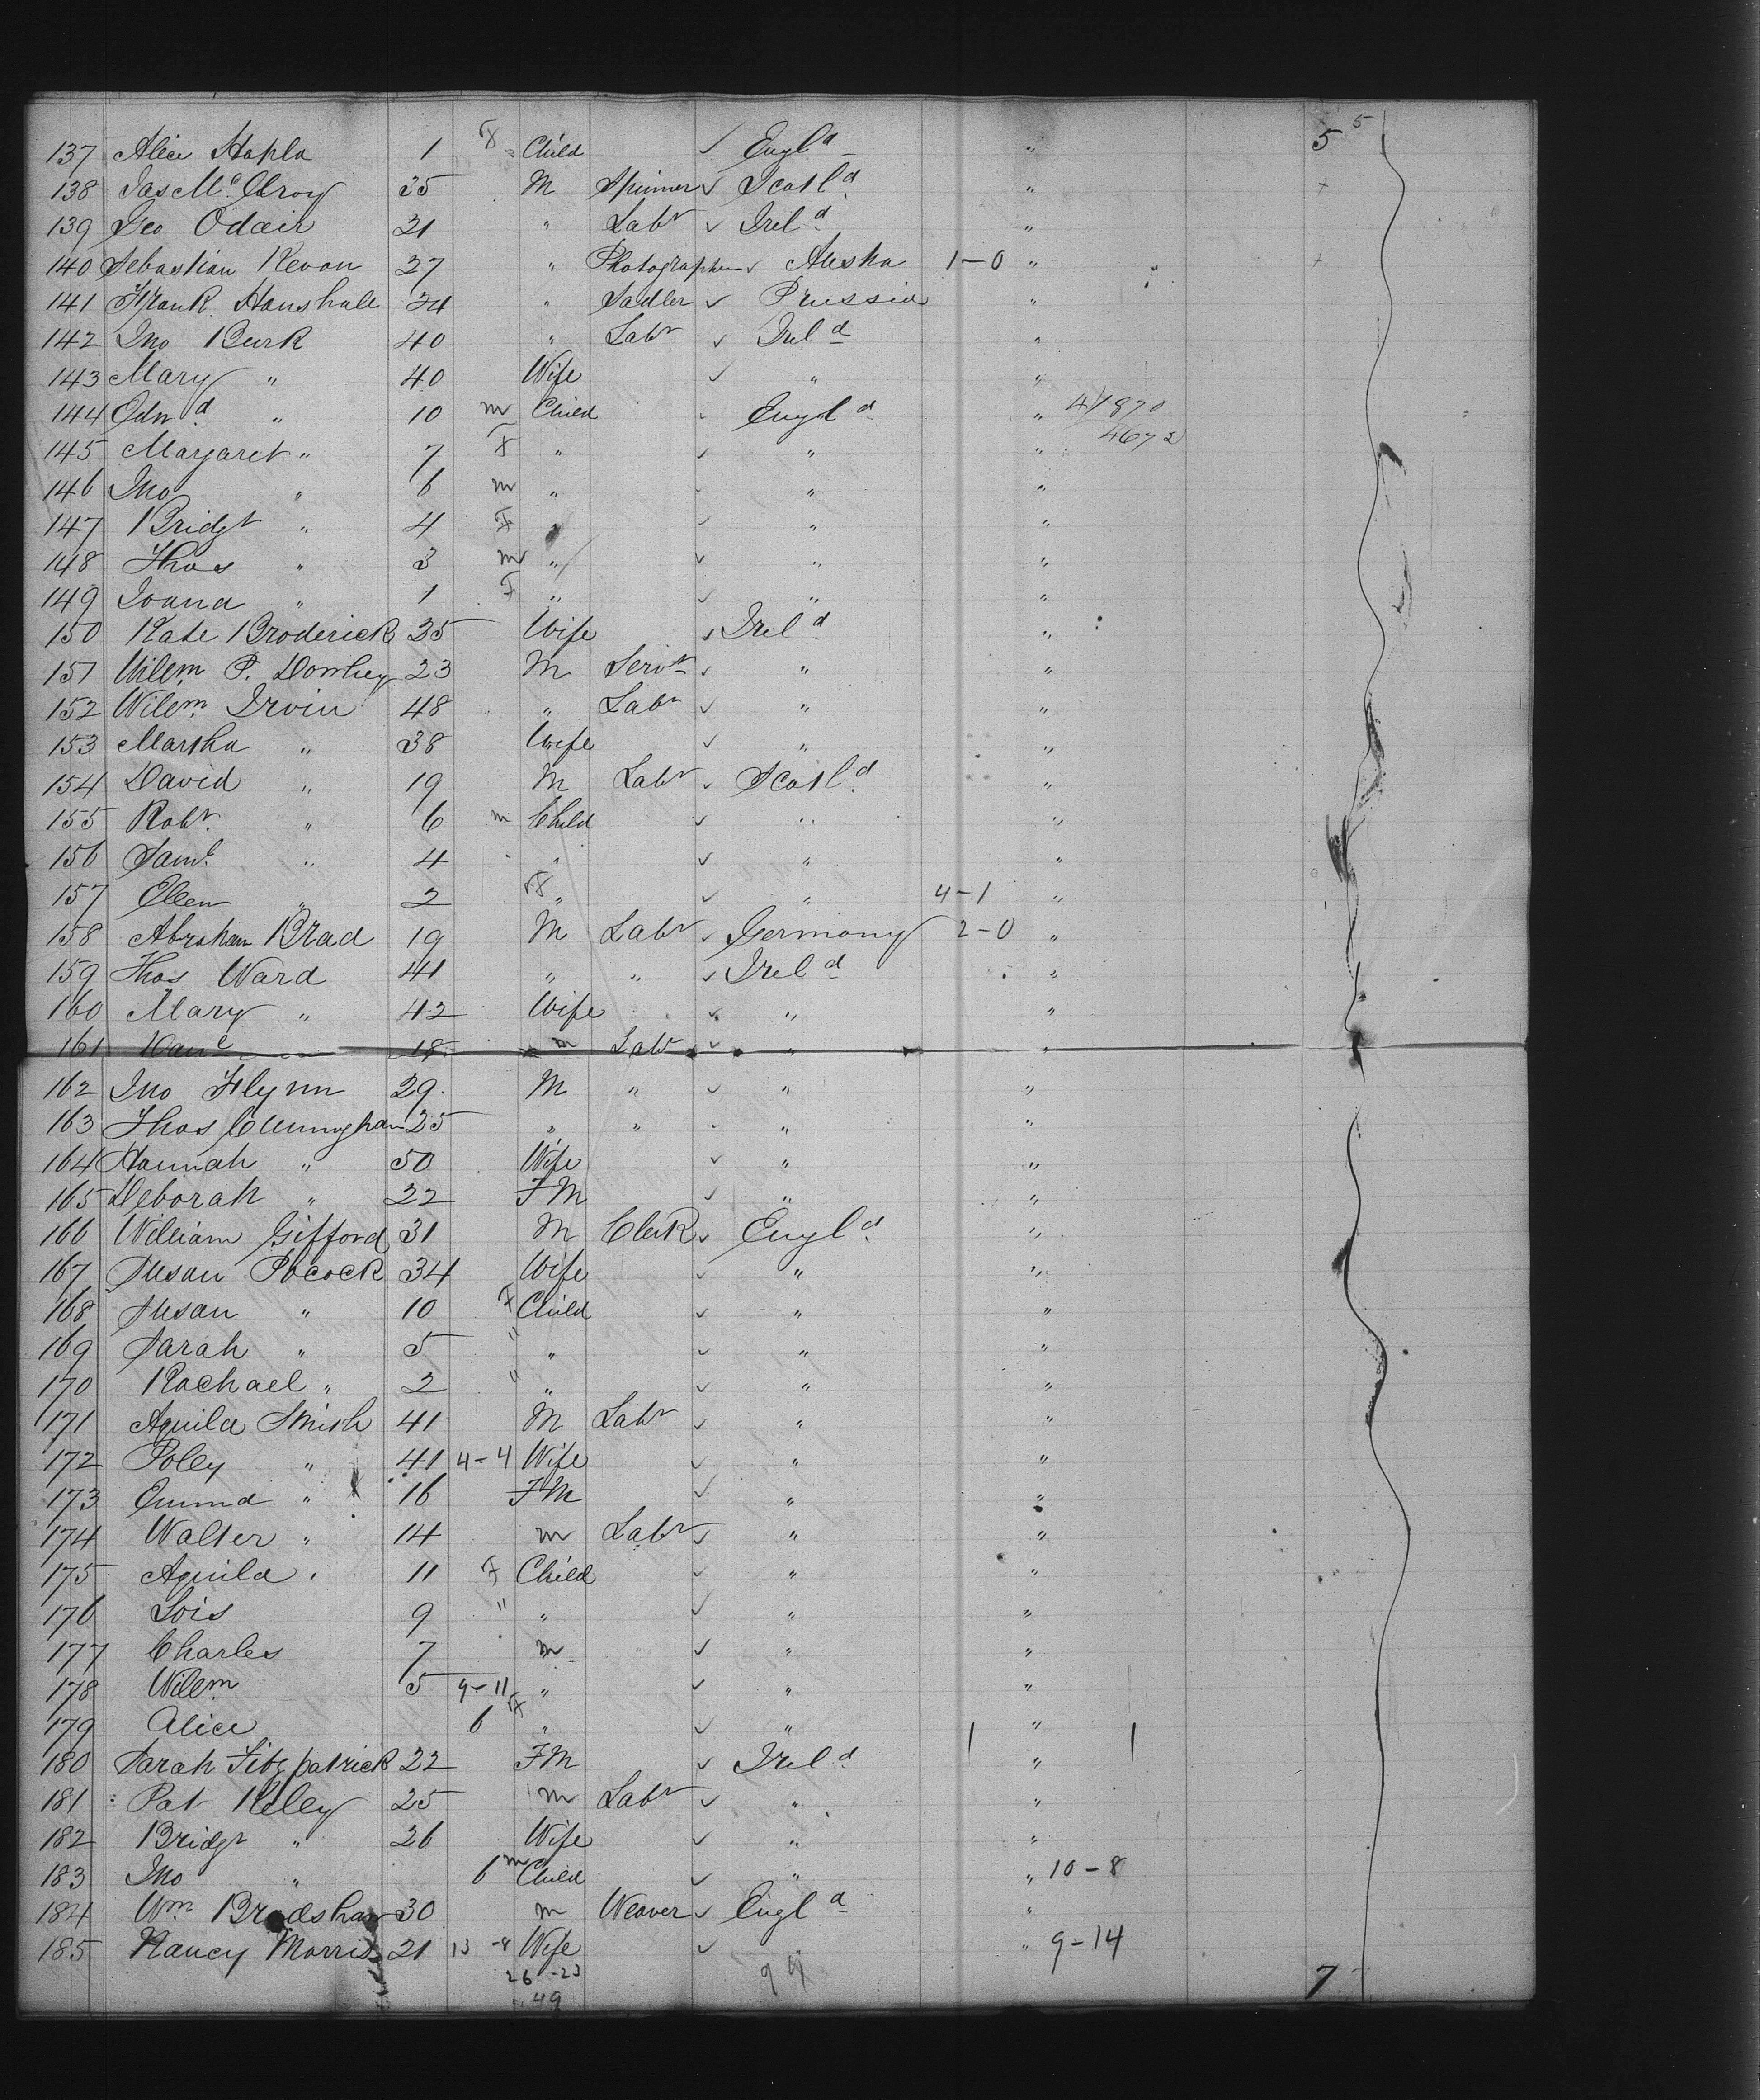 137 Alice Hapla 1 F Child ✓ Engld " 5 5
138 Jas McElroy 35 M Spinner ✓ Scotld " +
139 Geo Odair 21 " Labr ✓ Ireld "
140 Sebastian Kevon 27 " Photographer ✓ Austra 1-0 " +
141 Frank Hanshall 34 " Sadler ✓ Prussia "
142 Jno Burk 40 " Labr ✓ Ireld "
143 Mary " 40 Wife ✓ " "
144 Edmd " 10 m Child Engld " 4/1870
145 Margaret " 7 F " ✓ " " 4672
146 Jno " 6 m " " "
147 Bridgt " 4 F " ✓ " "
148 Thos " 3 m " ✓ " "
149 Joana " 1 F " ✓ " "
150 Kate Broderick 35 Wife ✓ Ireld "
151 Wilem P. Dowhey 23 M Servt ✓ " "
152 Wilem Irvin 48 " Labr ✓ " "
153 Martha " 38 Wife ✓ " "
154 David " 19 M Labr ✓ Scotld "
155 Robt " 6 m Child ✓ " "
156 Saml " 4 " ✓ " "
157 Ellen " 2 F " ✓ " 4-1 "
158 Abraham Brad 19 M Labr ✓ Germany 2-0 "
159 Thos Ward 41 " " ✓ Ireld "
160 Mary " 42 Wife ✓ " "
161 Danl 18 m Labr ✓ " "
162 Jno Flynn 29 M " ✓ " "
163 Thos Cuningham 25 " " " "
164 Hannah " 50 Wife ✓ " "
165 Deborah " 22 FM ✓ " "
166 William Gifford 31 M Clerk ✓ Engld "
167 Susan Pocock 34 Wife ✓ " "
168 Susan " 10 F Child ✓ " "
169 Sarah " 5 " " ✓ " "
170 Rachael " 2 " " ✓ " "
171 Aquila Smith 41 M Labr ✓ " "
172 Polly " 41 4-4 Wife ✓ " "
173 Emma " 16 FM ✓ " "
174 Walter " 14 m Labr ✓ " "
175 Aquila " 11 F Child ✓ " "
176 Lois 9 " " ✓ " "
177 Charles 7 m ✓ " "
178 Wilem 5 9-11 " ✓ " "
179 Alice 6 F " ✓ " "
180 Sarah Fitzpatrick 22 FM ✓ Ireld 1 " 1
181 Pat Kelley 25 m Labr ✓ " "
182 Bridgt " 26 Wife ✓ " "
183 Jno " 6 m Child ✓ " " 10-8
184 Wm Bradshaw 30 m Weaver ✓ Engld "
185 Nancy Morris 21 13-8 Wife ✓ " 9-14
26-23 7
49